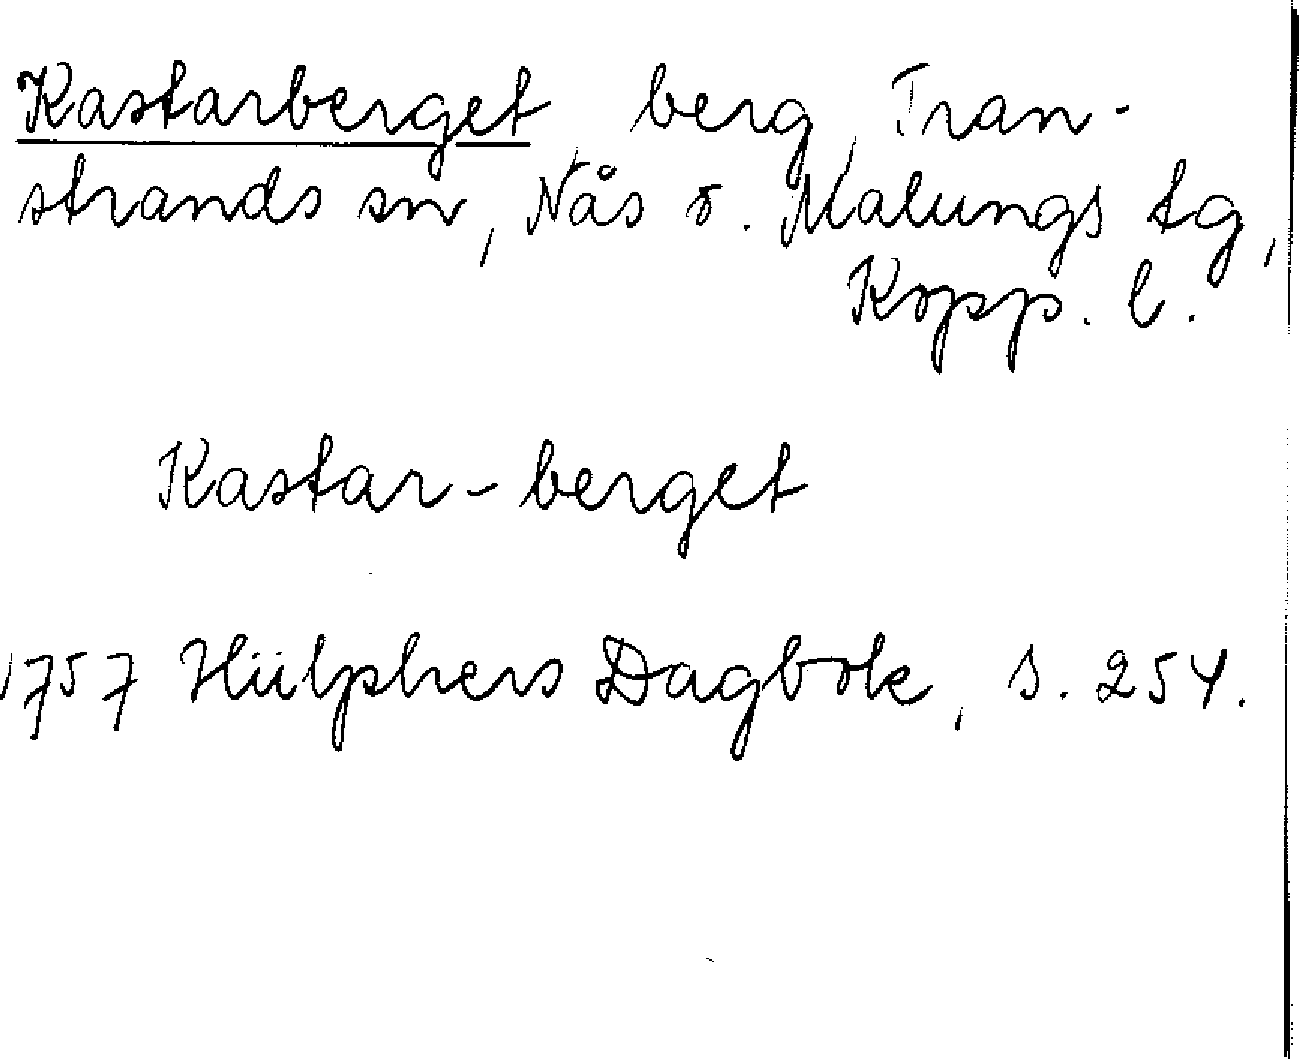 Kastarberget berg, Tran-
strands sn, Nås o. Malungs tg,
Kopp. l.
Kastar-berget
1757 Hülphers Dagbok, s. 254.